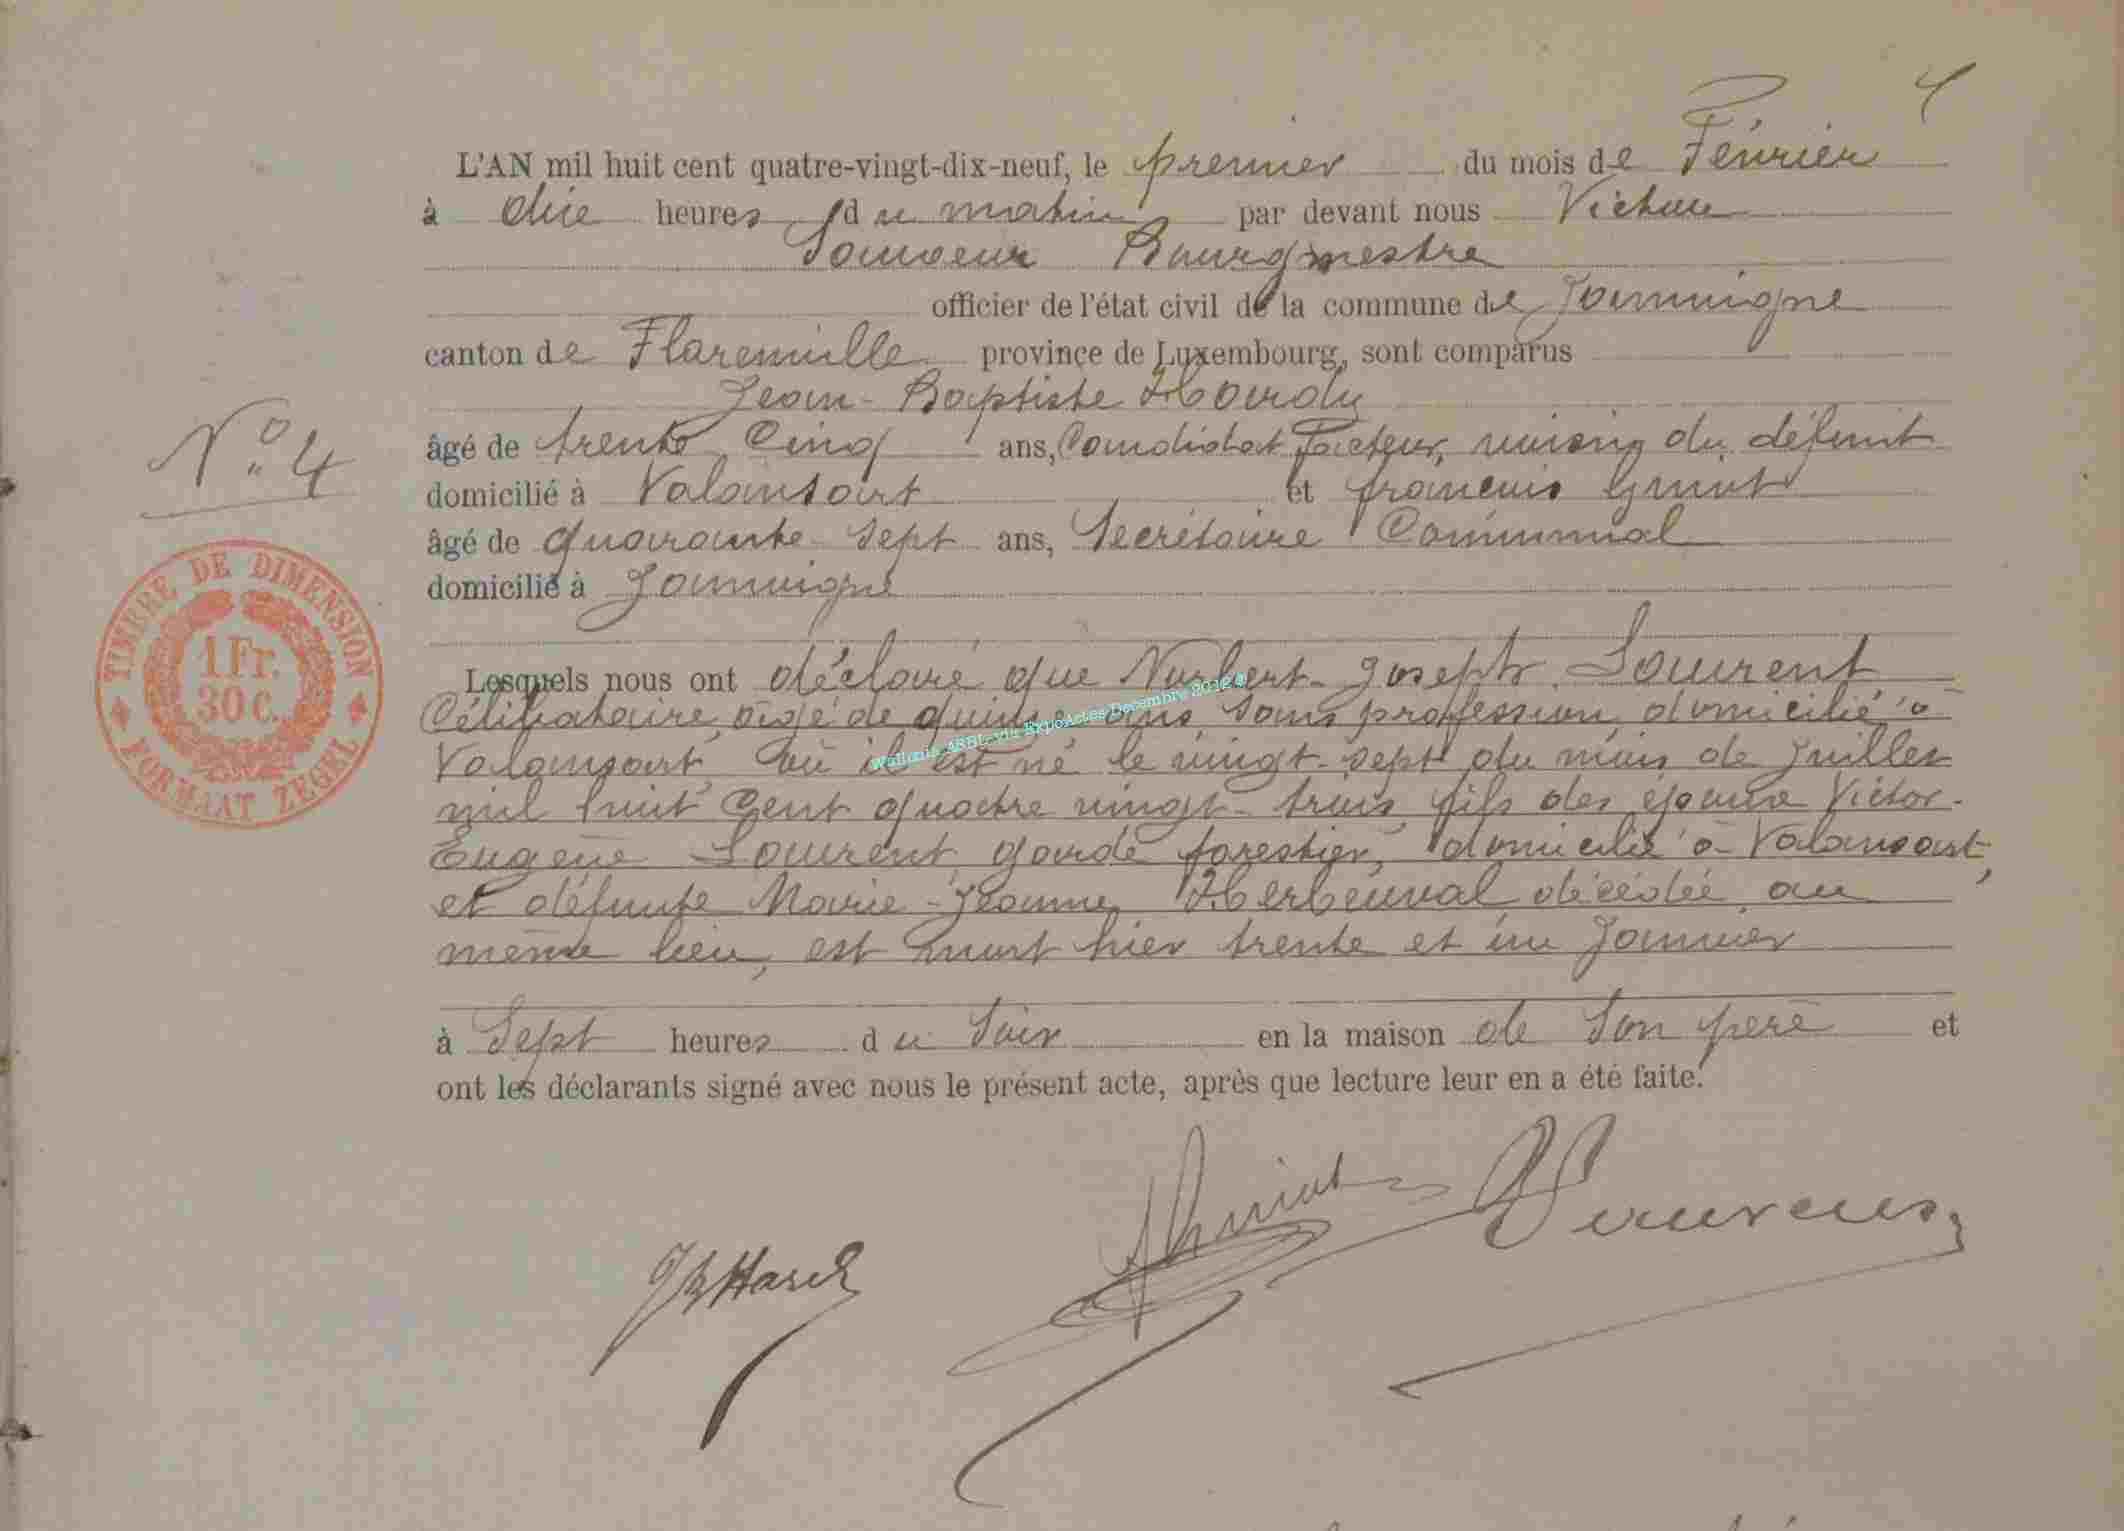 4
L'AN mil huit cent quatre-vingt-dix-neuf, le premier du mois de Février
à dix heures du matin par devant nous Victor
Bourgmestre
officier de l'état civil de la commune de Jamoigne
canton de Florenville province de Luxembourg, sont comparus
Jean-Baptiste Hardy
âgé de trente cinq ans, Candidat facteur, voisin du défunt
N° 4
domicilié à Valansart et françois
âgé de quarante sept ans, Secrétaire Communal
domicilié à Jamoigne
TIMBRE DE DIMENSION
1 Fr.
30 c.
FORMAAT ZEGEL
Lesquels nous ont déclaré que Norbert-Joseph Laurent
Célibataire, âgé de quinze ans sans profession, domicilié à
Wallonia ASBL via ExpoActes Decembre 2012
Valansart, où il est né le vingt-sept du mois de Juillet
mil huit Cent quatre vingt-trois, fils des époux Victor-
Eugène Laurent, garde forestier, domicilié à Valansart,
et défunte Marie-Jeanne Herbeuval décédée au
même lieu, est mort hier trente et un Janvier
à Sept heures du Soir en la maison de Son père et
ont les déclarants signé avec nous le présent acte, après que lecture leur en a été faite.